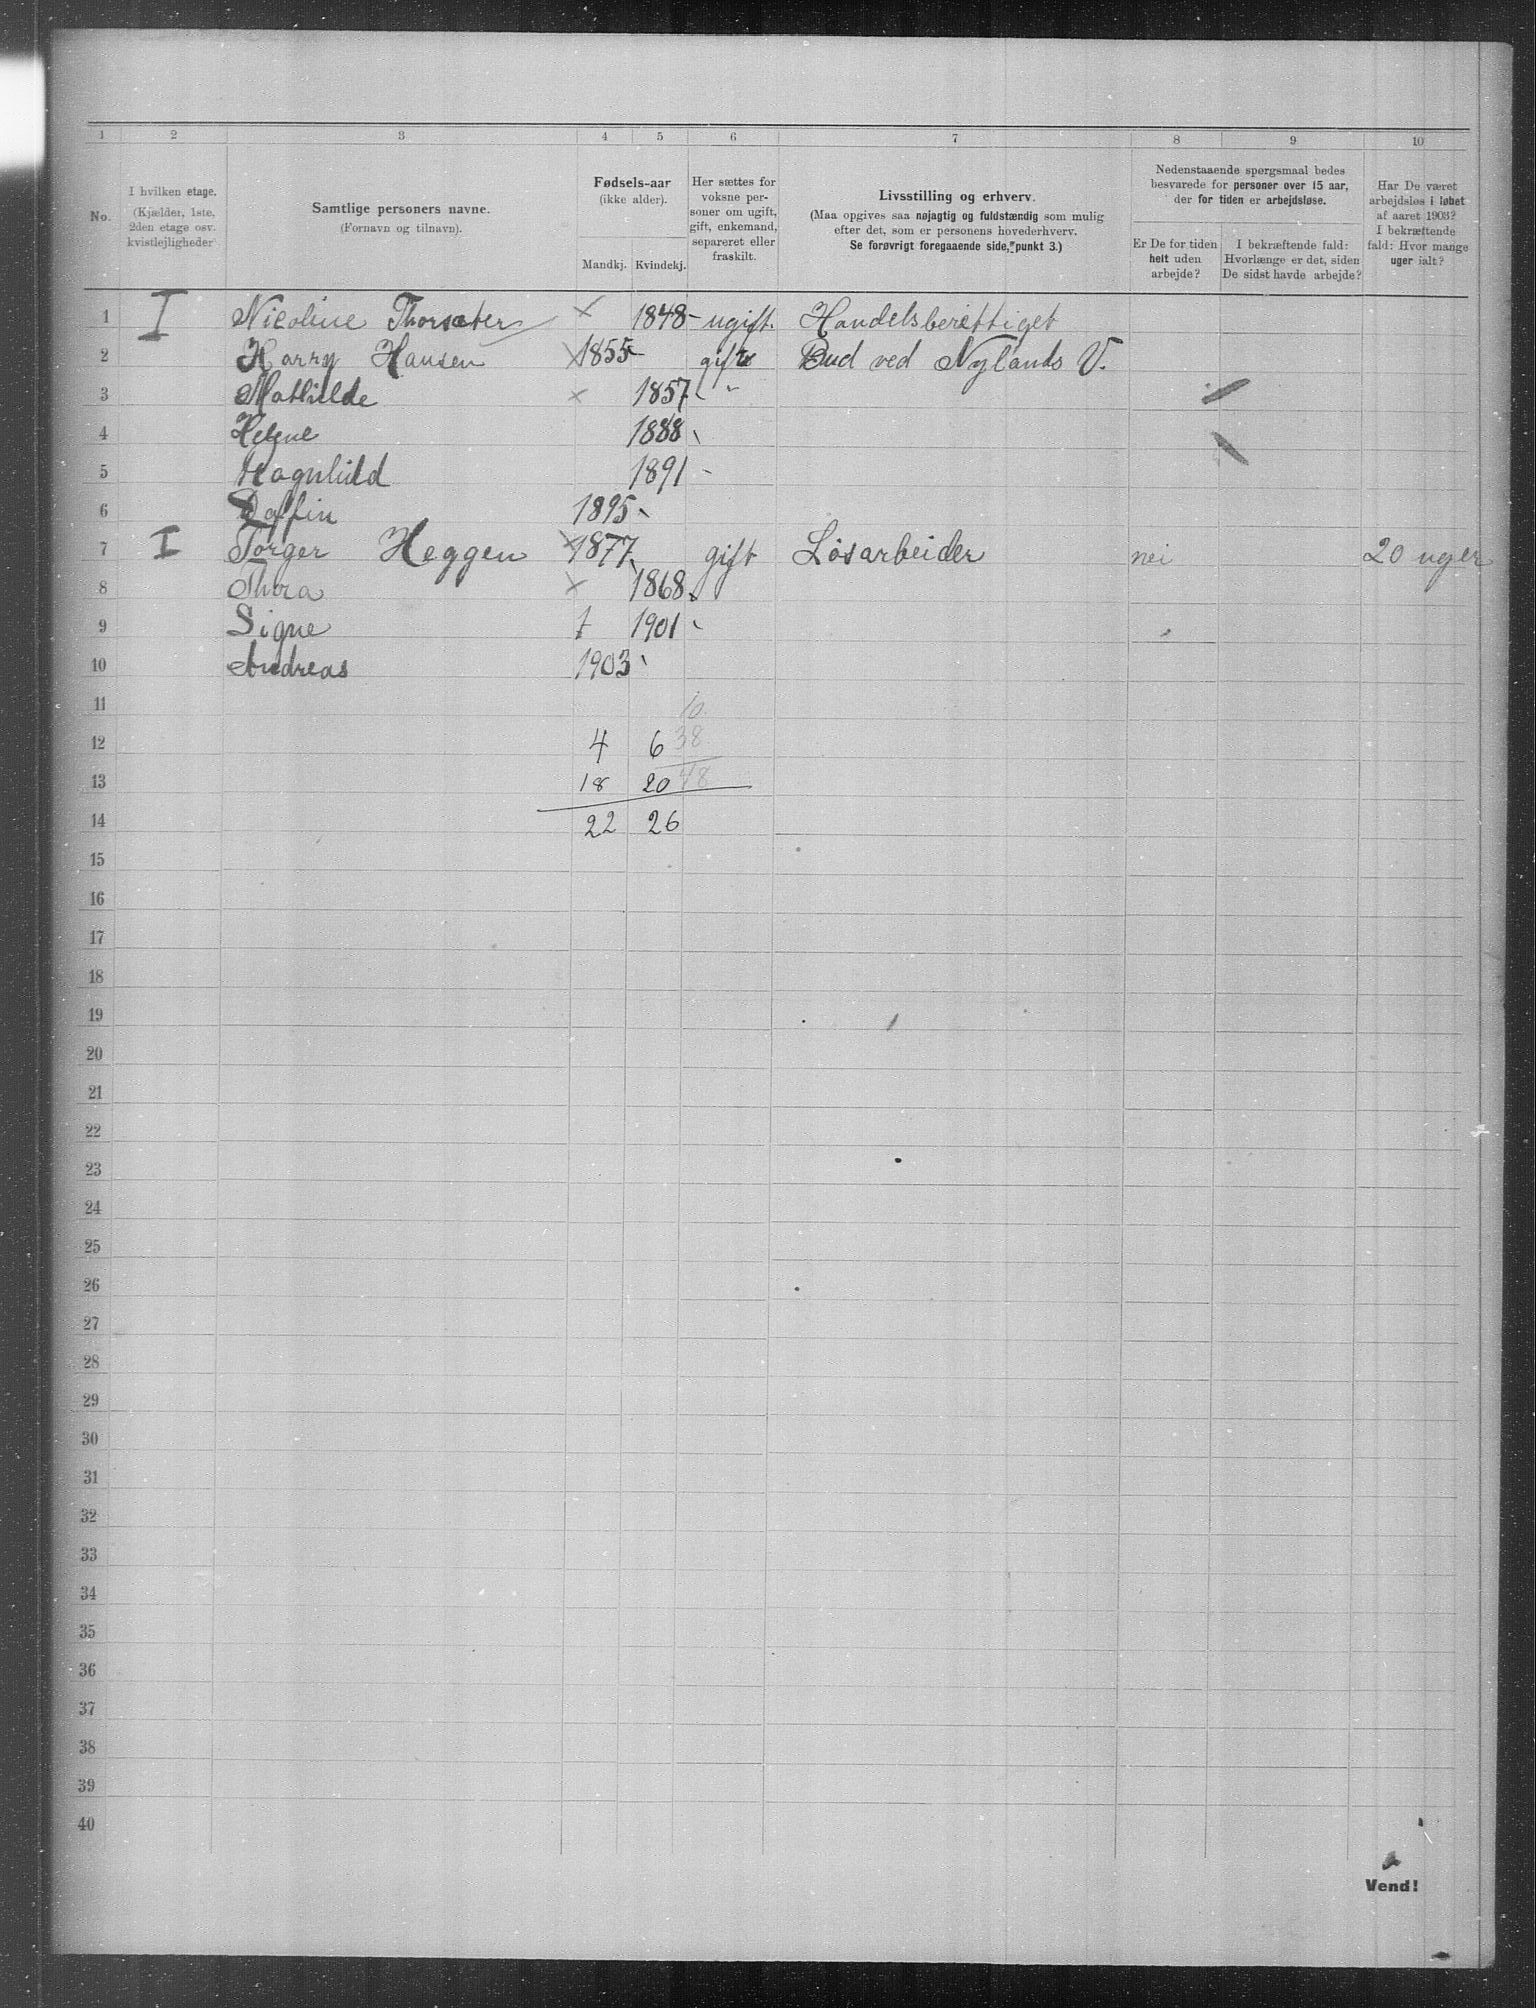 1 2 3 4 5 6 7 8 9 10
No.
I hvilken etage.
(Kjælder, 1ste,
2den etage osv.
kvistlejligheder
Samtlige personers navne.
(Fornavn og tilnavn).
Fødsels-aar
(ikke alder).
Mandkj. Kvindekj.
Her sættes for
voksne per-
soner om ugift,
gift, enkemand,
separeret eller
fraskilt.
Livsstilling og erhverv.
(Maa opgives saa nøjagtig og fuldstændig som mulig
efter det, som er personens hovederhverv.
Se forøvrigt foregaaende side, punkt 3.)
Nedenstaaende spørgsmaal bedes
besvarede for personer over 15 aar,
der for tiden er arbejdsløse.
Er De for tiden
helt uden
arbejde?
I bekræftende fald:
Hvorlænge er det, siden
De sidst havde arbejde?
Har De været
arbejdsløs i løbet
af aaret 1903?
I bekræftende
fald: Hvor mange
uger ialt?
1 I Nicoline Thorsæter × 1848 - ugift. Handelsberettiget
2 Harry Hansen × 1855 - gift Bud ved Nylands V.
3 Mathilde × 1857 "
4 Helene 1888
5 Ragnhild 1891 -
6 1895
7 I Torger Heggen × 1877 gift Løsarbeider nei 20 uger
8 Thora × 1868
9 Signe 1901
10 Andreas 1903
11 10
12 4 6 38
13 18 20 48
14 22 26
15
16
17
18
19
20
21
22
23
24
25
26
27
28
29
30
31
32
33
34
35
36
37
38
39
40
Vend!